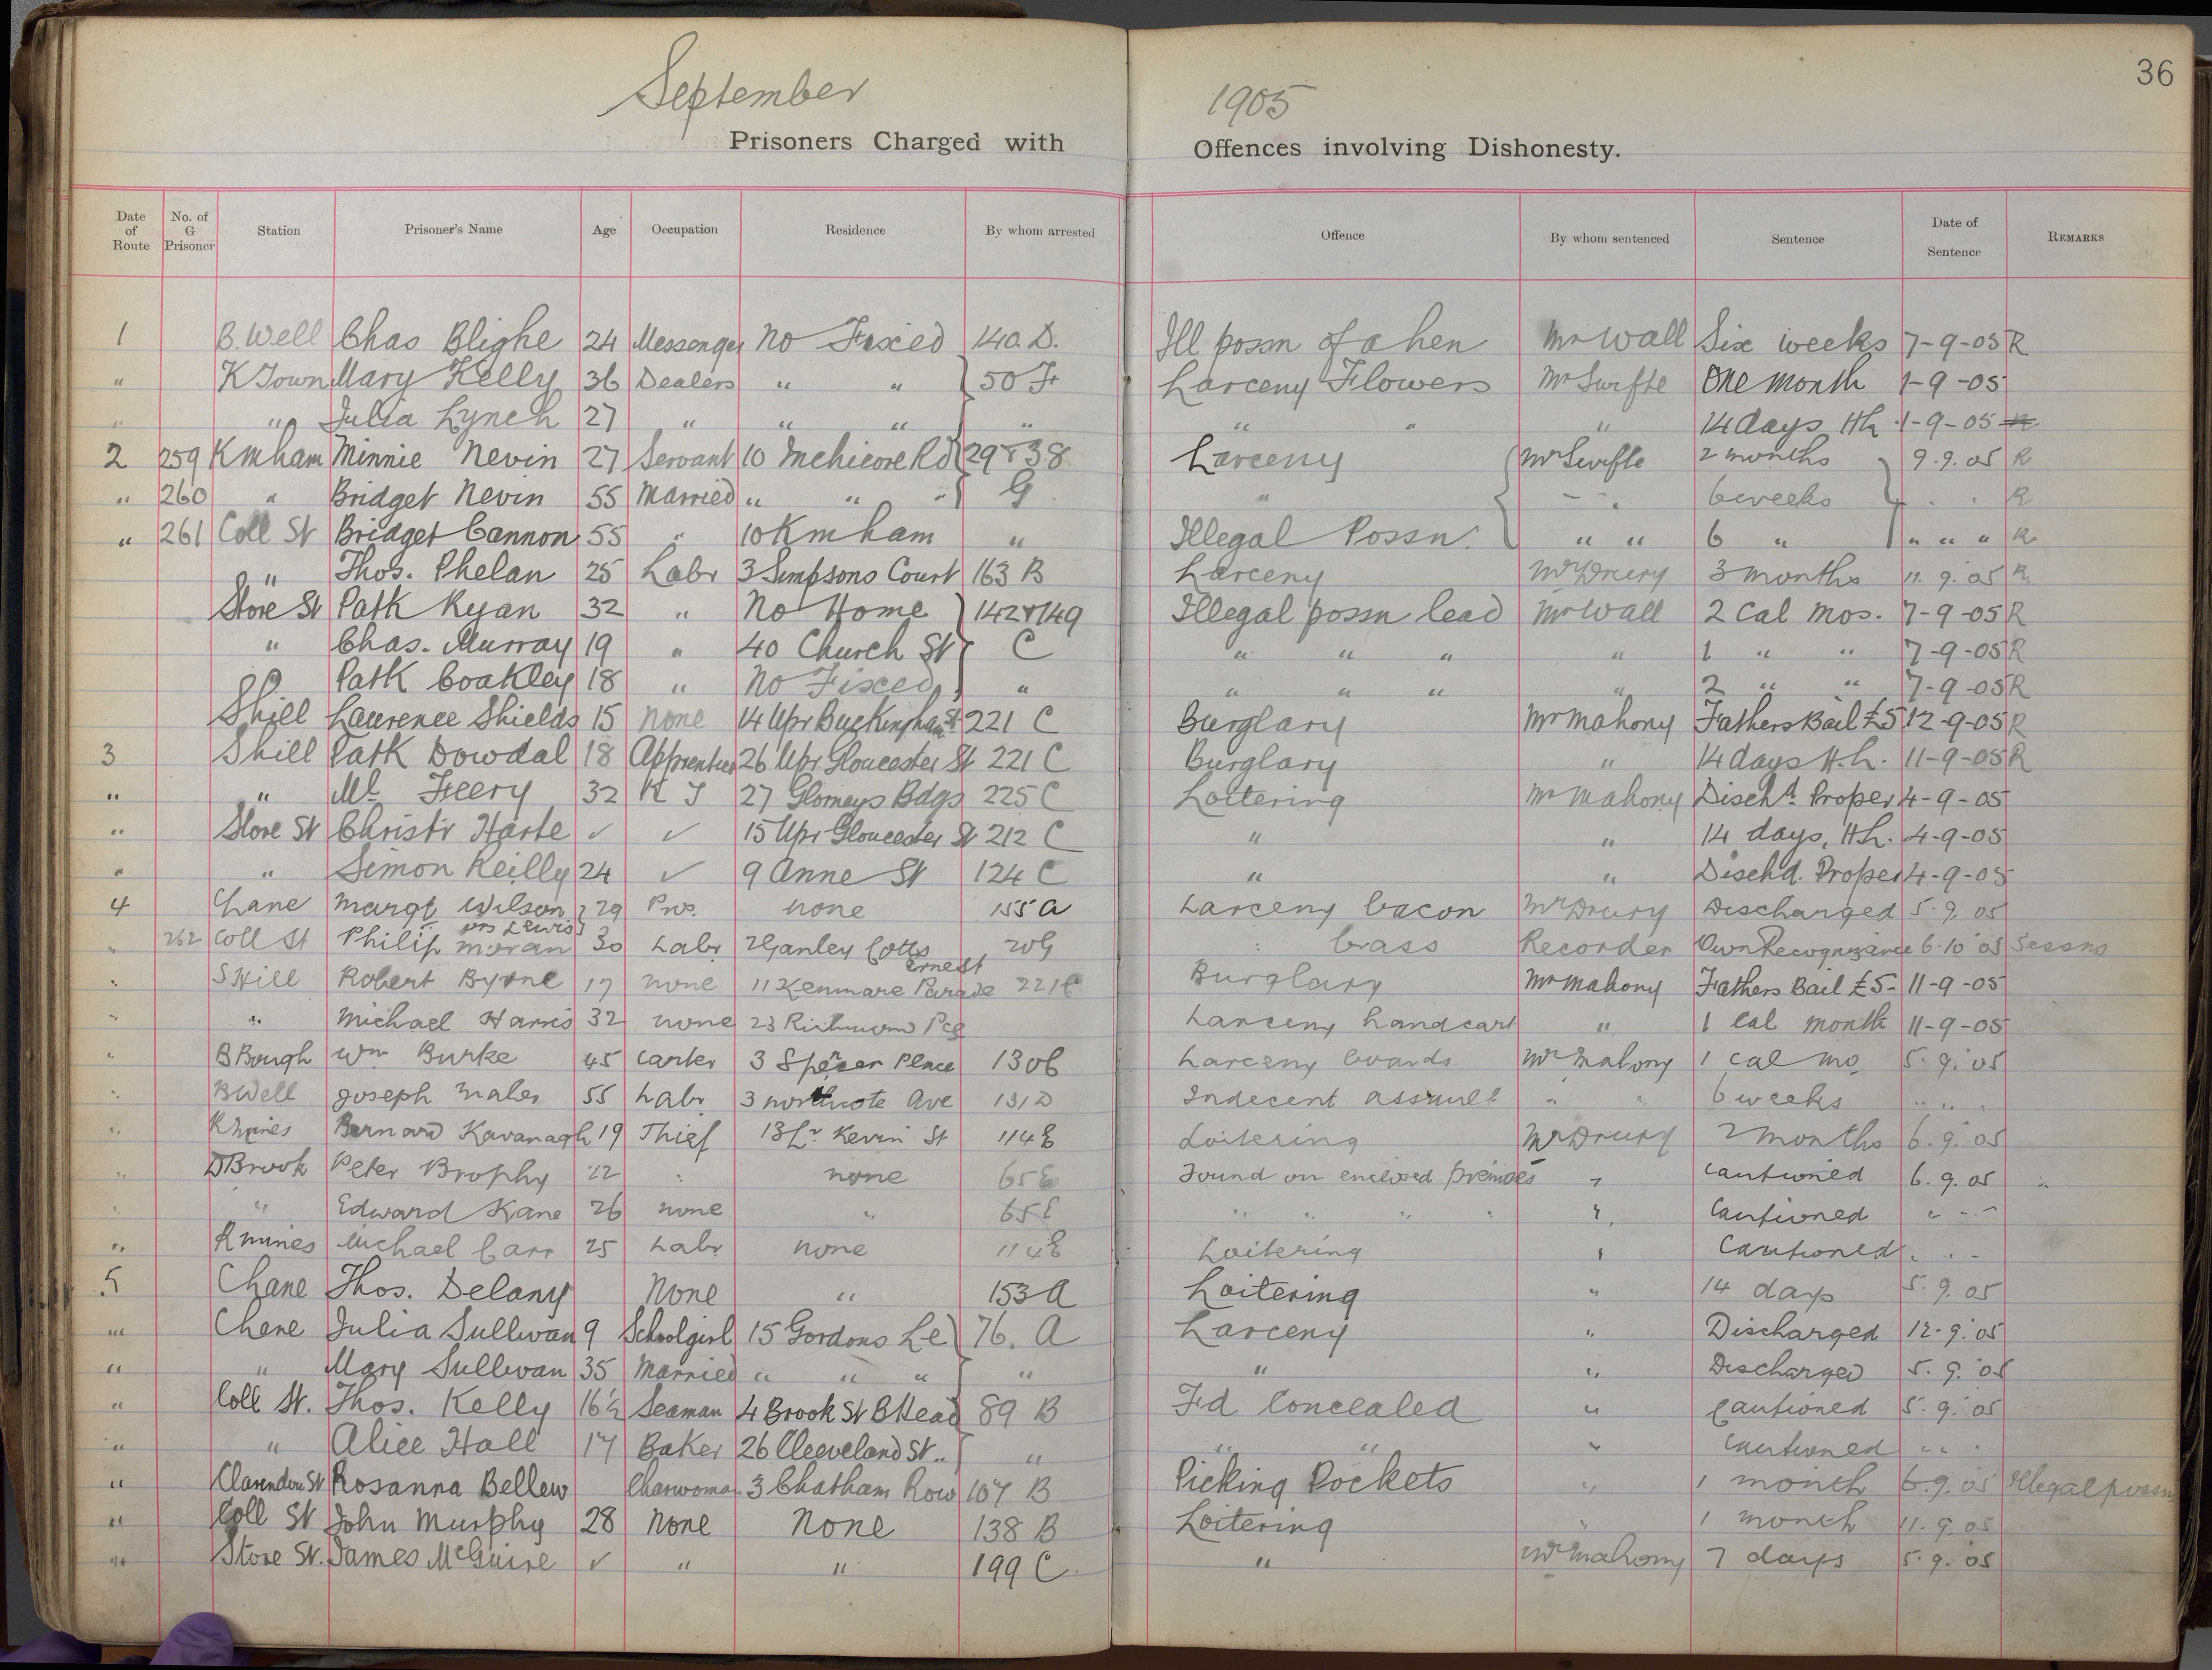 36
September 1905
Prisoners Charged with Offences involving Dishonesty.
Date of Route No. of G Prisoner Station Prisoner's Name Age Occupation Residence By whom arrested Offence By whom sentenced Sentence Date of Sentence REMARKS
1 B. Well Chas Blighe 24 Messenger No Fixed 140 D. Ill possn of a hen Mr Wall Six weeks 7-9-05 R
" K Town Mary Kelly 36 Dealers " " 50 F Larceny Flowers Mr Swifte One month 1-9-05
" " Julia Lynch 27 " " " " " " " 14 days Hh 1-9-05
2 259 Kmham Minnie Nevin 27 Servant 10 Inchicore Rd 29 & 38 Larceny Mr Swifte 2 months 9.9.05 R
" 260 " Bridget Nevin 55 Married " " " G " " " 6 weeks " " R
" 261 Coll St Bridget Cannon 55 " 10 Kmham " Illegal Possn. " " 6 " " " " R
" Thos. Phelan 25 Labr 3 Simpsons Court 163 B Larceny Mr Drury 3 months 11.9.05 R
Store St Patk Ryan 32 " No Home 142 & 149 Illegal possn lead Mr Wall 2 Cal mos. 7-9-05 R
" Chas. Murray 19 " 40 Church St C " " " " 1 " " 7-9-05 R
Patk Coakley 18 " No Fixed " " " " " 2 " " 7-9-05 R
Shill Laurence Shields 15 none 14 Upr Buckingham St 221 C Burglary Mr Mahony Fathers Bail £5 12-9-05 R
3 Shill Patk Dowdal 18 Apprentice 26 Upr Gloucester St 221 C Burglary " 14 days H.h. 11-9-05 R
" " Ml Feery 32 K J 27 Glorneys Bdgs 225 C Loitering Mr Mahony Dischd. Proper 4-9-05
" Store St Christr Harte ✓ ✓ 15 Upr Gloucester St 212 C " " 14 days, Hh. 4-9-05
" " Simon Reilly 24 ✓ 9 Anne St 124 C " " Dischd. Proper 4-9-05
4 Chane Margt Wilson ors Lewis 29 Pros. none 155 A Larceny bacon Mr Drury Discharged 5.9.05
" 262 Coll St Philip Moran 30 Labr 2 Ganley Cotts 20 G " brass Recorder Own Recognizance 6.10.05 Sessns
" S Hill Robert Byrne 17 none 11 Kenmare Parade ernest 221 C Burglary Mr Mahony Fathers Bail £5- 11-9-05
" " Michael Harris 32 none 23 Richmond Pce Larceny handcart " 1 Cal month 11-9-05
" B Bough Wm Burke 45 Carter 3 Spencer Place 130 C Larceny boards Mr Mahony 1 cal mo. 5.9.05
" B Well Joseph Maher 55 Labr 3 northcote Ave 131 D Indecent assault " " 6 weeks " " "
" Rhmines Bernard Kavanagh 19 Thief 13 Lr Kevin St 114 E Loitering Mr Drury 2 months 6.9.05
" D Brook Peter Brophy 22 " none 65 E Found on enclosed premises " Cautioned 6.9.05 "
" " Edward Kane 26 none " 65 E " " " " " Cautioned " " "
" Rmines Michael Carr 25 Labr none 114 E Loitering " Cautioned " " "
5 Chane Thos. Delany None " 153 A Loitering " 14 days 5.9.05
" Chane Julia Sullivan 9 Schoolgirl 15 Gordons Le 76. A Larceny " Discharged 12-9.05
" " Mary Sullivan 35 Married " " " " " " Discharged 5.9.05
" Coll St. Thos. Kelly 16½ Seaman 4 Brook St BHead 89 B Fd Concealed " Cautioned 5.9.05
" " Alice Hall 17 Baker 26 Cleeveland St " " " " " Cautioned " "
" Clarendon St Rosanna Bellew Charwoman 3 Chatham Row 107 B Picking Pockets " 1 month 6.9.05 Illegal possn
" Coll St John Murphy 28 None None 138 B Loitering " 1 month 11.9.05
" Store St. James McGuire ✓ " " 199 C " Mr Mahony 7 days 5.9.05